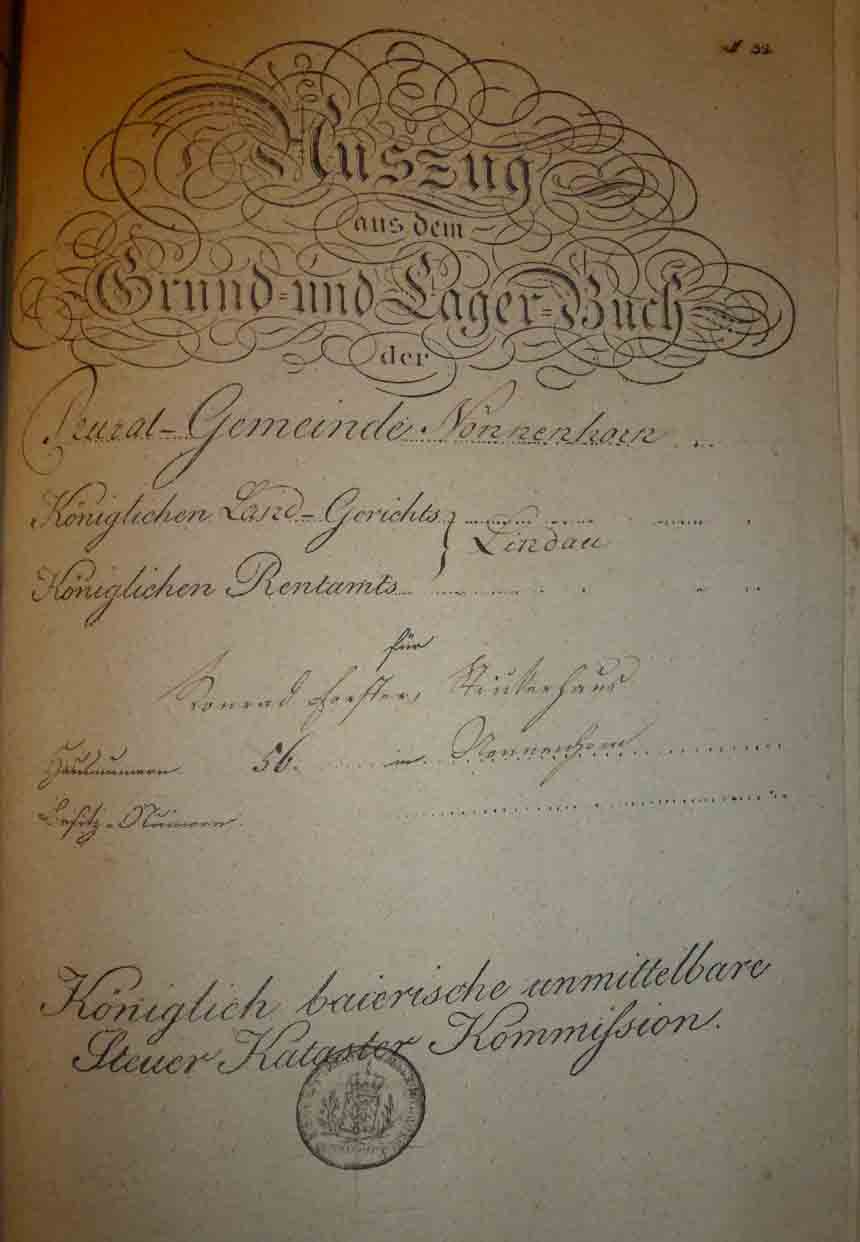 Nº 59.
Auszug
aus dem
Grund-und Lager-Buch
der
Rural-Gemeinde Nonnenhorn
Königlichen Land-Gerichts
Lindau
Königlichen Rentamts
für
Konrad Forster,
Hausnumern 56. in Nonnenhorn
Besitz-Numern
Königlich baierische unmittelbare
Steuer Kataster Kommission.